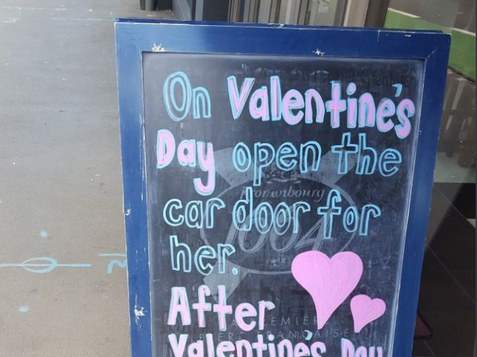 On Valentine's
Day open the
car door for
her.
After
Valentines Day
Kronenbourg
1664